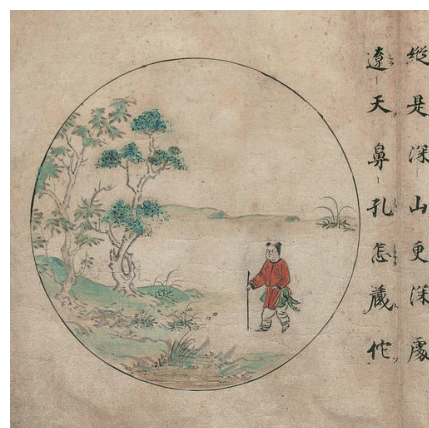 縱是深山更深處
遼天鼻孔怎藏他